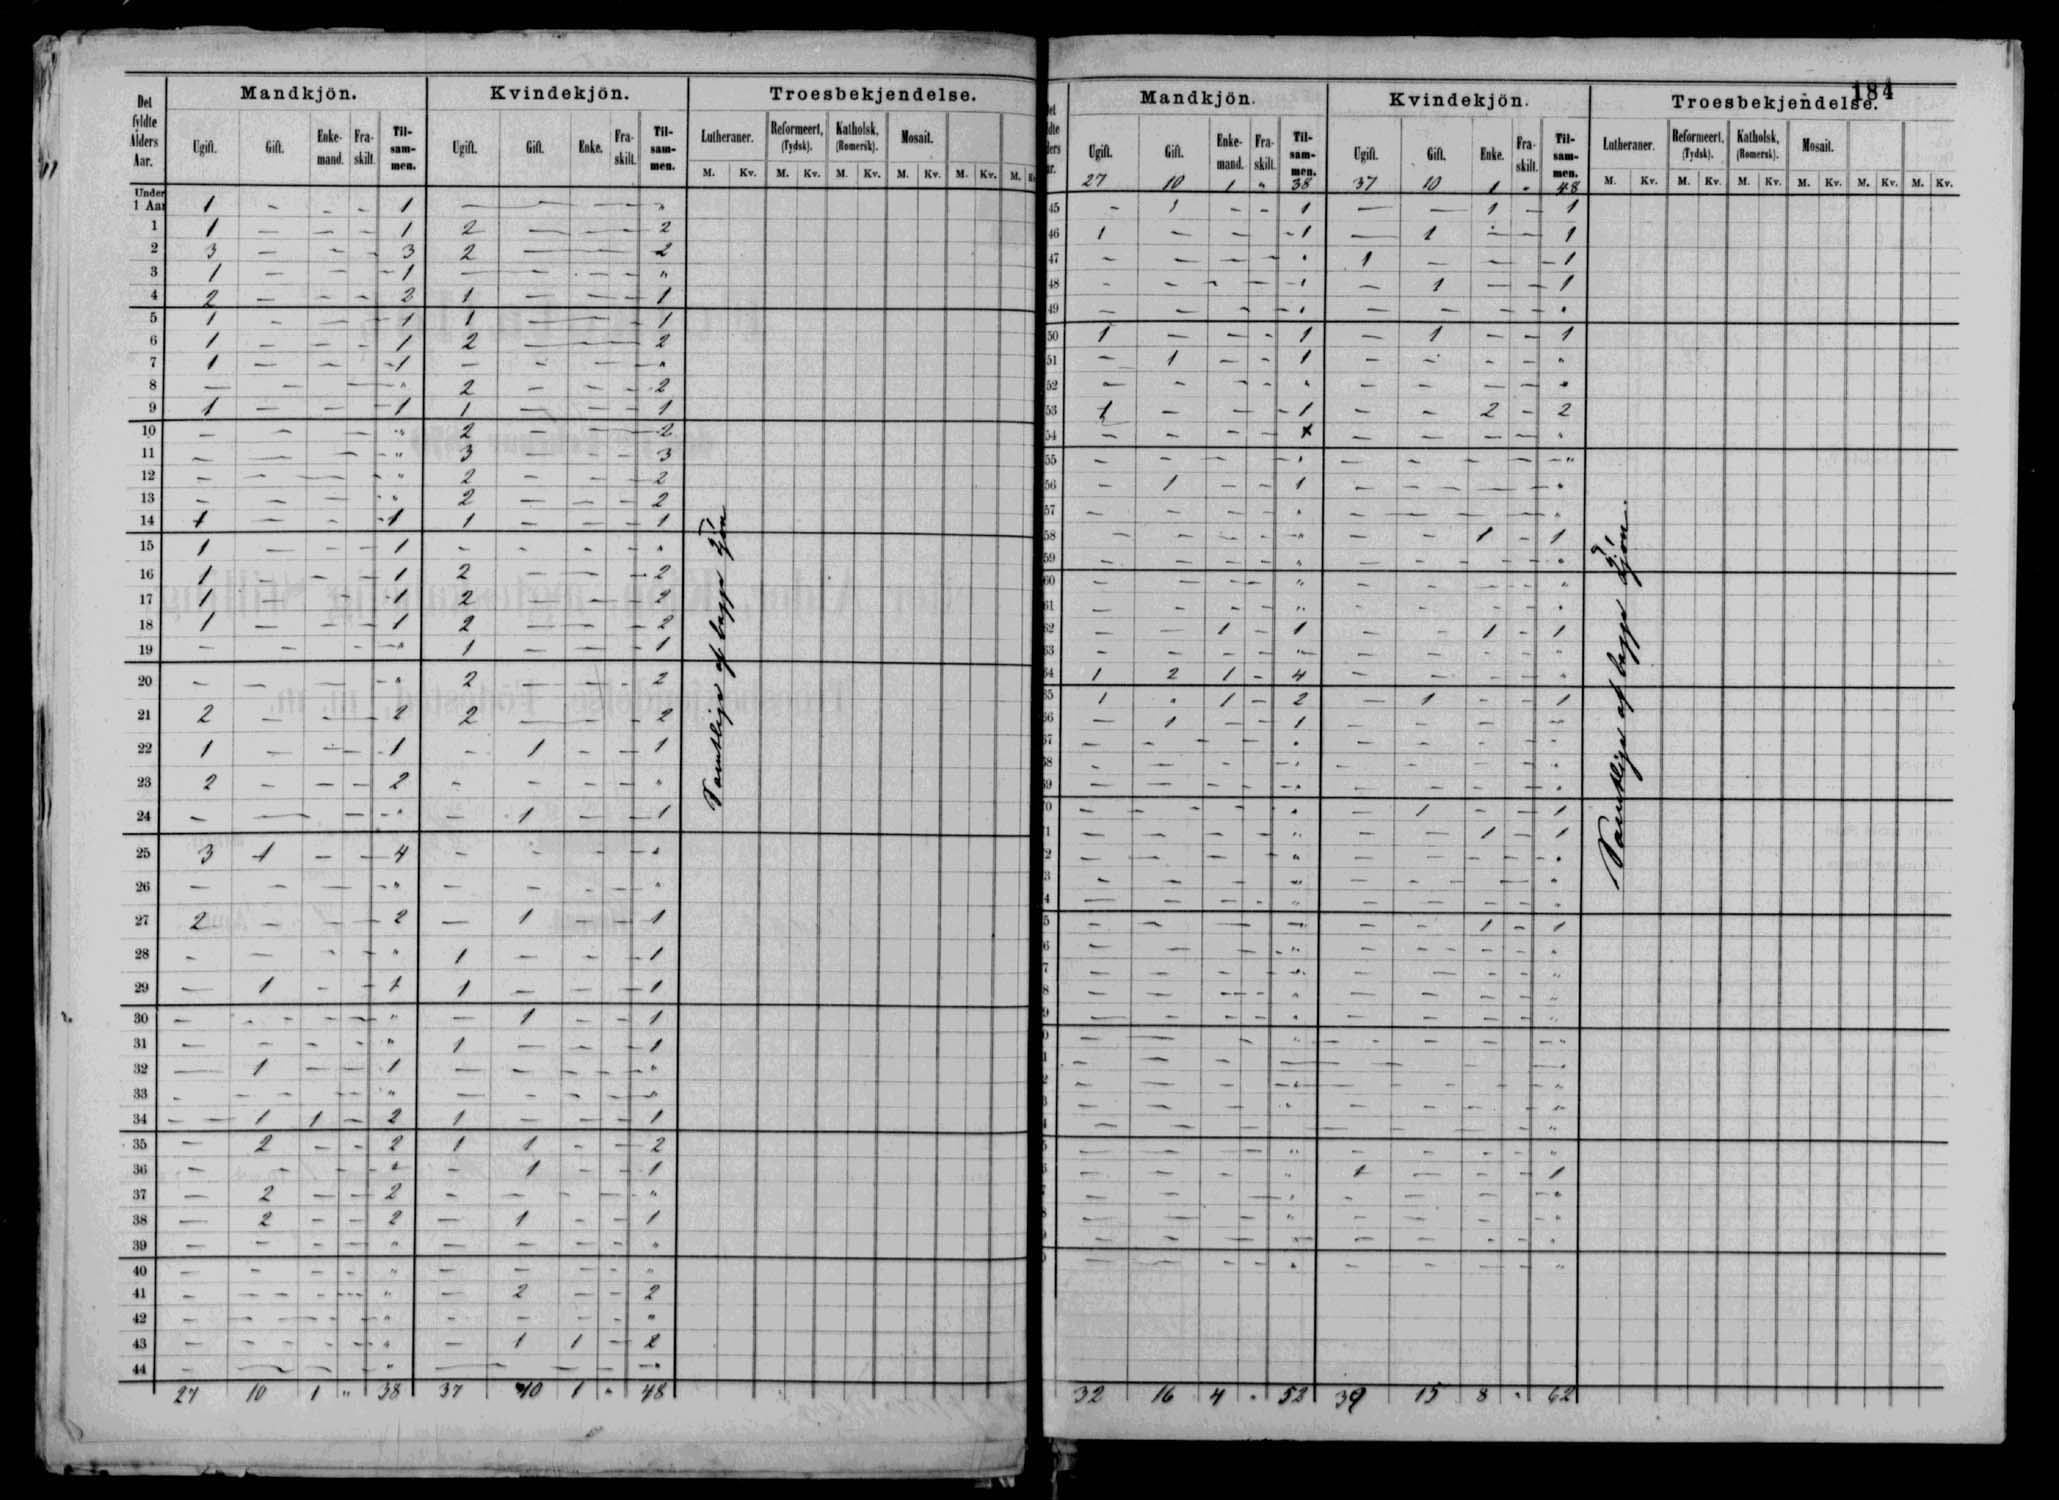 184
Mandkjön. Kvindekjön. Troesbekjendelse.
Det fyldte Alders Aar. Ugift. Gift. Enke- mand. Fra- skilt. Til- sam- men. Ugift. Gift. Enke. Fra- skilt. Til- sam- men. Lutheraner. Reformeert, (Tydsk). Katholsk, (Romersk). Mosait.
M. Kv. M. Kv. M. Kv. M. Kv. M. Kv. M.
Under 1 Aar 1 - - - 1 - - - - "
1 1 - - - 1 2 - - - 2
2 3 - - - 3 2 - - - 2
3 1 - - - 1 - - - - "
4 2 - - - 2 1 - - - 1
5 1 - - - 1 1 - - - 1
6 1 - - - 1 2 - - - 2
7 1 - - - 1 - - - - "
8 - - - - " 2 - - - 2
9 1 - - - 1 1 - - - 1
10 - - - - " 2 - - - 2
11 - - - - " 3 - - - 3
12 - - - - " 2 - - - 2
13 - - - - " 2 - - - 2
14 1 - - - 1 1 - - - 1
15 1 - - - 1 - - - - "
16 1 - - - 1 2 - - - 2
17 1 - - - 1 2 - - - 2
18 1 - - - 1 2 - - - 2
19 - - - - " 1 - - - 1
20 - - - - " 2 - - - 2
21 2 - - - 2 2 - - - 2
22 1 - - - 1 - 1 - - 1
23 2 - - - 2 - - - - "
24 - - - - " - 1 - - 1
25 3 1 - - 4 - - - - "
26 - - - - " - - - - "
27 2 - - - 2 - 1 - - 1
28 - - - - " 1 - - - 1
29 - 1 - - 1 1 - - - 1
30 - - - - " - 1 - - 1
31 - - - - " 1 - - - 1
32 - 1 - - 1 - - - - "
33 - - - - " - - - - "
34 - 1 1 - 2 1 - - - 1
35 - 2 - - 2 1 1 - - 2
36 - - - - " - 1 - - 1
37 - 2 - - 2 - - - - "
38 - 2 - - 2 - 1 - - 1
39 - - - - " - - - - "
40 - - - - " - - - - "
41 - - - - " - 2 - - 2
42 - - - - " - - - - "
43 - - - - " - 1 1 - 2
44 - - - - " - - - - "
27 10 1 " 38 37 10 1 " 48
Samtlige af begge Kjøn
Mandkjön. Kvindekjön. Troesbekjendelse.
Ugift. Gift. Enke- mand. Fra- skilt. Til- sam- men. Ugift. Gift. Enke. Fra- skilt. Til- sam- men. Lutheraner. Reformeert, (Tydsk). Katholsk, (Romersk). Mosait.
M. Kv. M. Kv. M. Kv. M. Kv. M. Kv. M. Kv.
27 10 1 " 38 37 10 1 " 48
45 - 1 - - 1 - - 1 - 1
46 1 - - - 1 - 1 - - 1
47 - - - - " 1 - - - 1
48 - - - - " - 1 - - 1
49 - - - - " - - - - "
50 1 - - - 1 - 1 - - 1
51 - 1 - - 1 - - - - "
52 - - - - " - - - - "
53 1 - - - 1 - - 2 - 2
54 - - - - - - - - "
55 - - - - " - - - - "
56 - 1 - - 1 - - - - "
57 - - - - " - - - - "
58 - - - - " - - 1 - 1
59 - - - - " - - - - "
60 - - - - " - - - - "
61 - - - - " - - - - "
62 - - 1 - 1 - - 1 - 1
63 - - - - " - - - - "
64 1 2 1 - 4 - - - - "
65 1 " 1 - 2 - 1 - - 1
66 - 1 - - 1 - - - - "
67 - - - - " - - - - "
68 - - - - " - - - - "
69 - - - - " - - - - "
70 - - - - " - 1 - - 1
1 - - - - " - - 1 - 1
2 - - - - " - - - - "
3 - - - - " - - - - "
4 - - - - " - - - - "
5 - - - - " - - 1 - 1
6 - - - - " - - - - "
7 - - - - " - - - - "
8 - - - - " - - - - "
9 - - - - " - - - - "
0 - - - - " - - - - "
1 - - - - - - - - "
2 - - - - " - - - - "
3 - - - - " - - - - "
4 - - - - - - - - "
5 - - - - " - - - - "
- - - - " 1 - - - 1
- - - - " - - - - "
- - - - " - - - - "
- - - - " - - - - "
- - - - " - - - - "
32 16 4 " 52 39 15 8 " 62
Samtlige af begge Kjøn